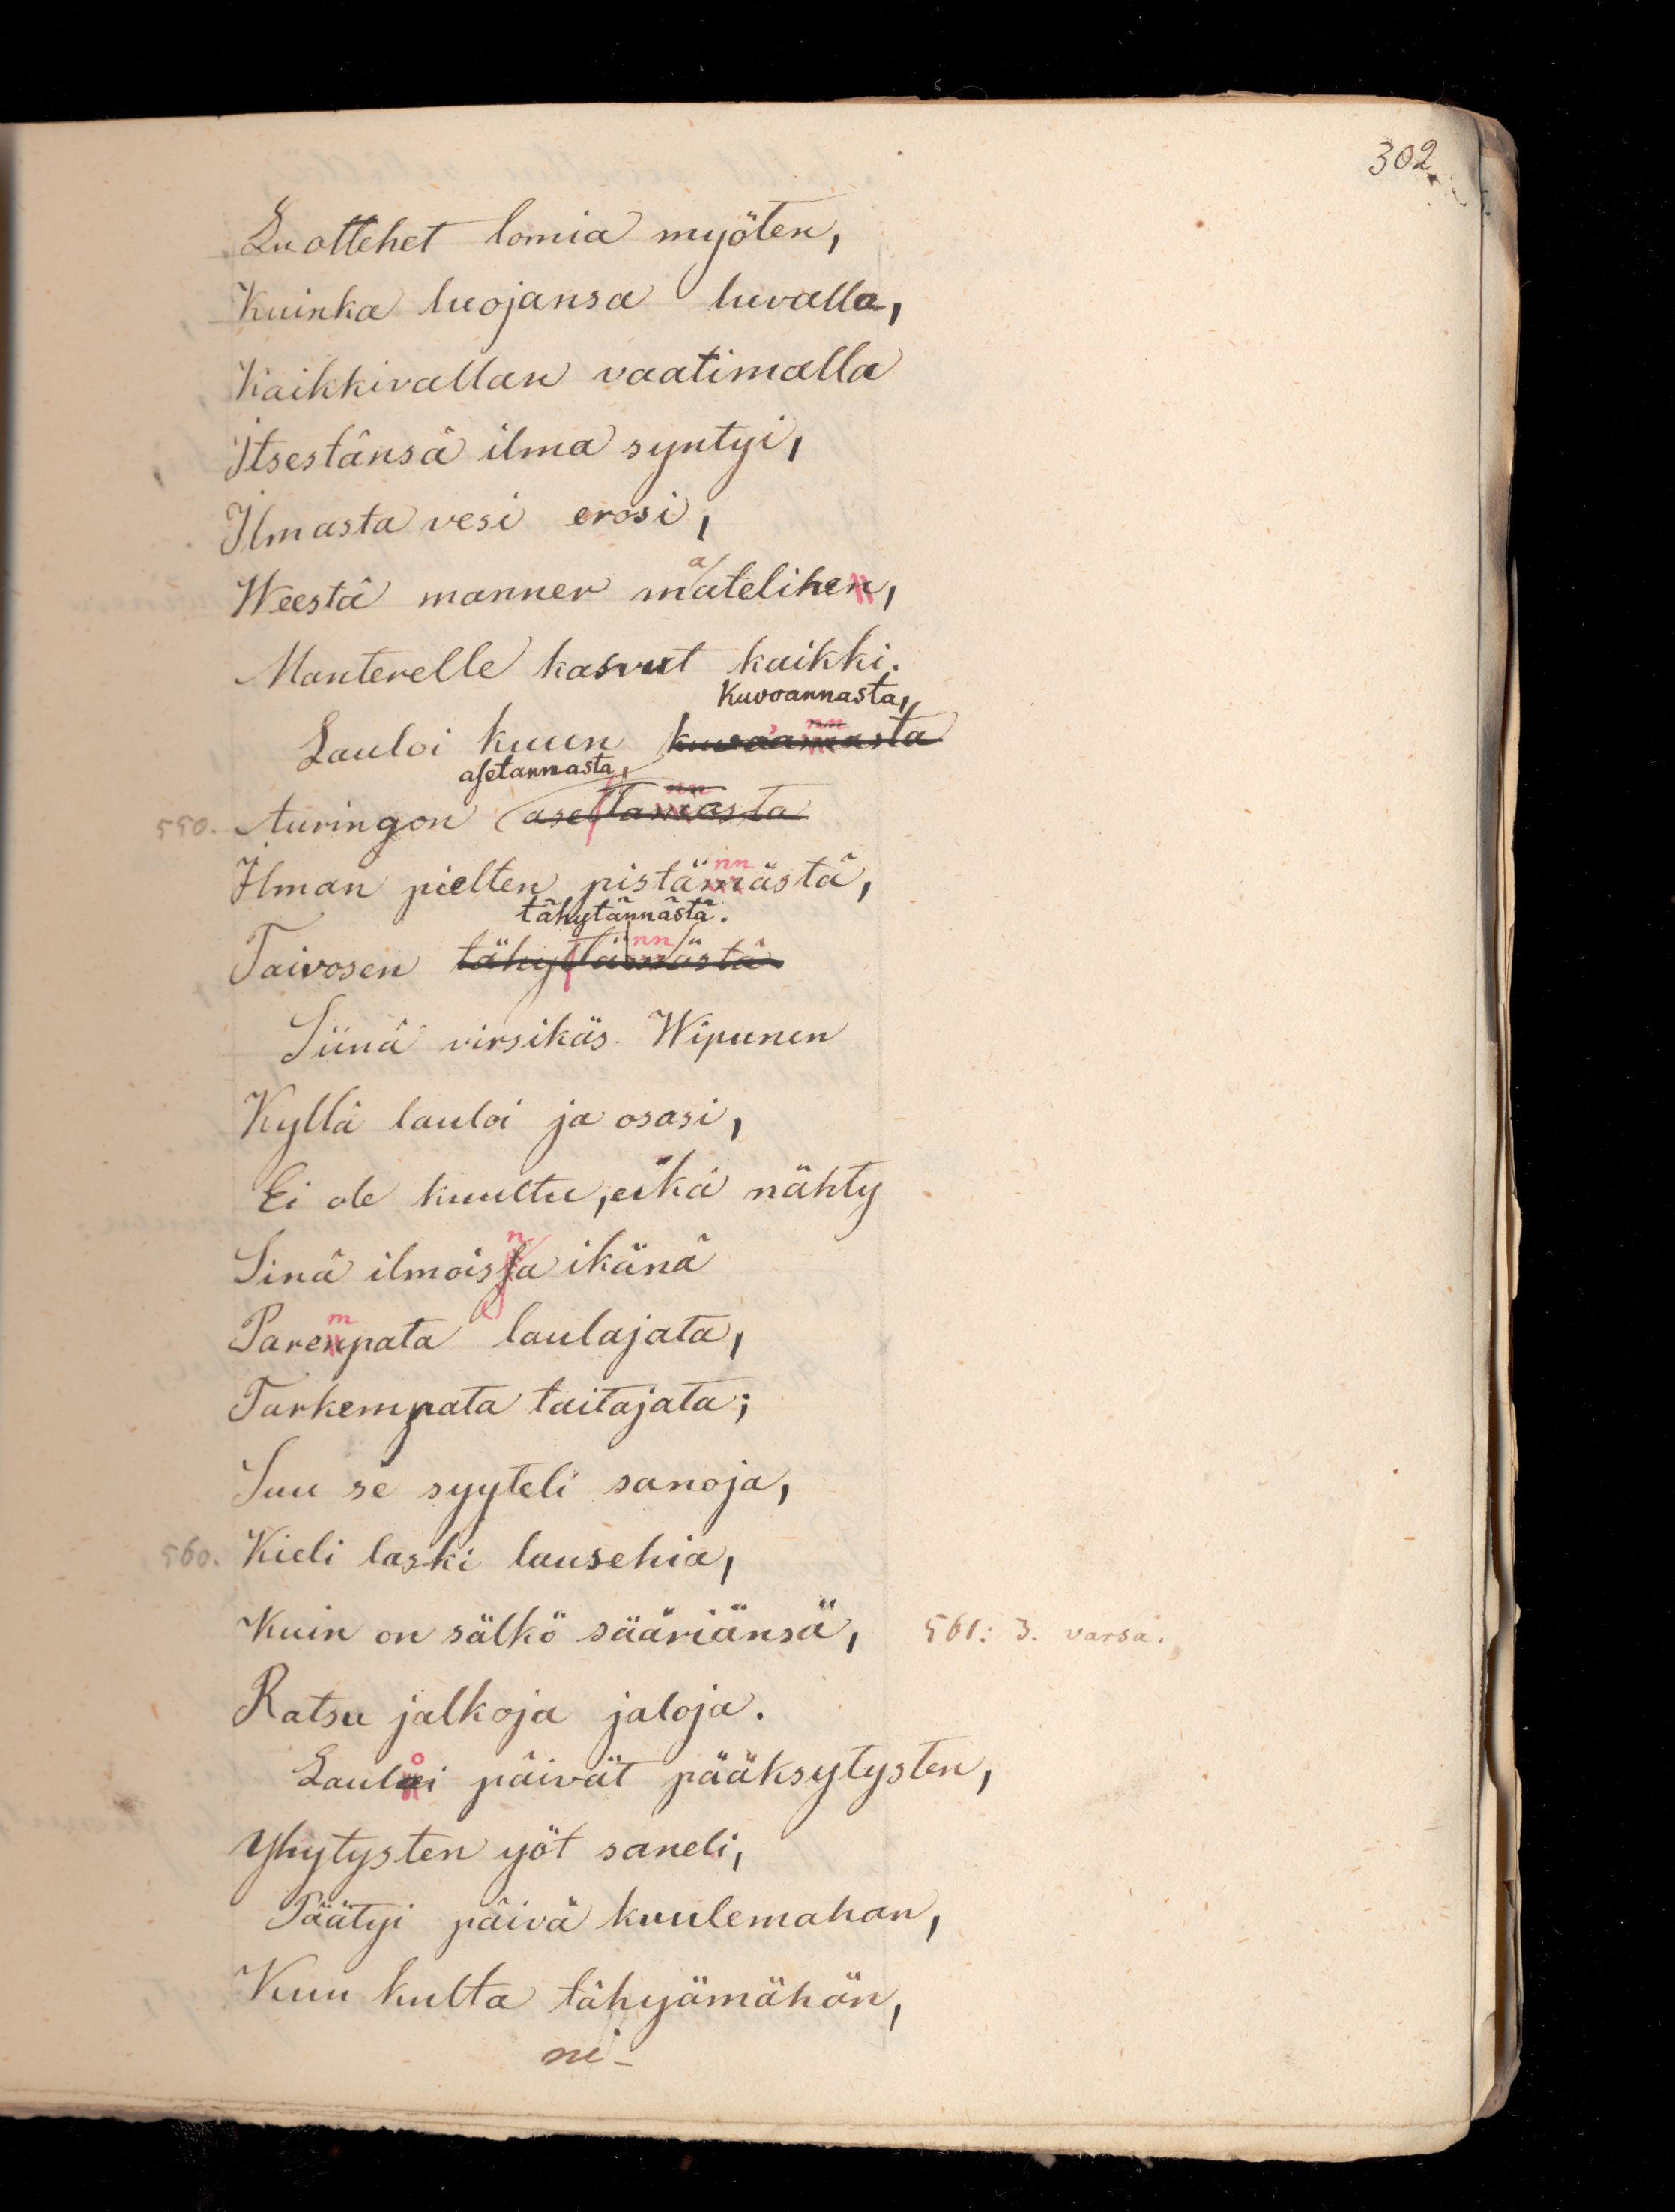 302.
Luottehet lomia myöten,
Kuinka luojansa luvalla,
Kaikkivallan vaatimalla
Itsestänsä ilma syntyi,
Ilmasta vesi erosi,
a
Weestä manner matelihen,
Manterelle kasvut kaikki.
Kuvoannasta,
Lauloi kuun kuvaamasta
nn
asetannasta,
550. Auringon asettamasta
nn
Ilman pielten pistämästä,
nn
tähytännästä.
Taivosen tähyttämästä
nn
Siinä virsikäs Wipunen
Kyllä lauloi ja osasi,
Ei ole kuultu, eikä nähty
Sinä ilmoista ikänä
n
Parenpata laulajata,
m
Tarkempata taitajata;
Suu se syyteli sanoja,
560. Kieli laski lausehia,
Kuin on sälkö sääriänsä, 561: 3. varsa.
Ratsu jalkoja jaloja.
Laulai päivät pääksytysten,
o
Yhytysten yöt saneli,
Päätyi päivä kuulemahan,
Kuu kulta tähyämähän,
ni-